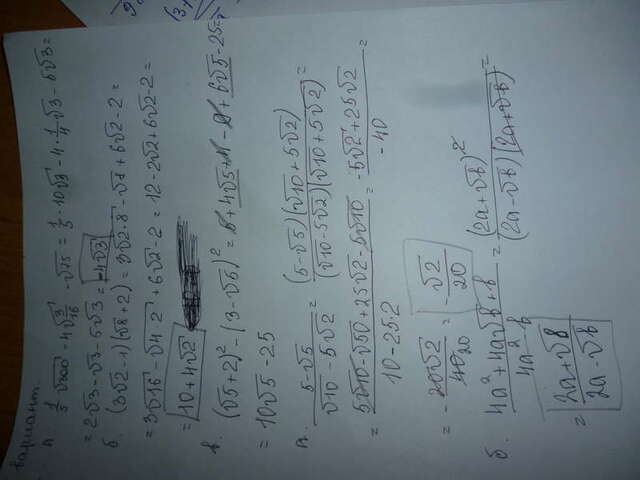 вариант.
1. 1/5 √300 - 4√(3/16) - √75 = 1/5 · 10√3 - 4 · 1/4 √3 - 5√3 =
= 2√3 - √3 - 5√3 = -4√3
б. (3√2 - 1)(√8 + 2) = 3√2·8 - √8 + 6√2 - 2 =
= 3√16 - √4·2 + 6√2 - 2 = 12 - 2√2 + 6√2 - 2 =
= 10 + 4√2
в. (√5 + 2)² - (3 - √5)² = 5 + 4√5 + 4 - 9 + 6√5 - 25 =
= 10√5 - 25
(5 - √5)/(√10 - 5√2) = (5 - √5)(√10 + 5√2)/(√10 - 5√2)(√10 + 5√2) =
= (5√10 - √50 + 25√2 - 5√10)/(10 - 25·2) = (-5√2 + 25√2)/(-40) =
= - 20√2/40 = - √2/20
б. (4a² + 4a√b + b)/(4a² - b) = (2a + √b)²/(2a - √b)(2a + √b) =
= (2a + √b)/(2a - √b)